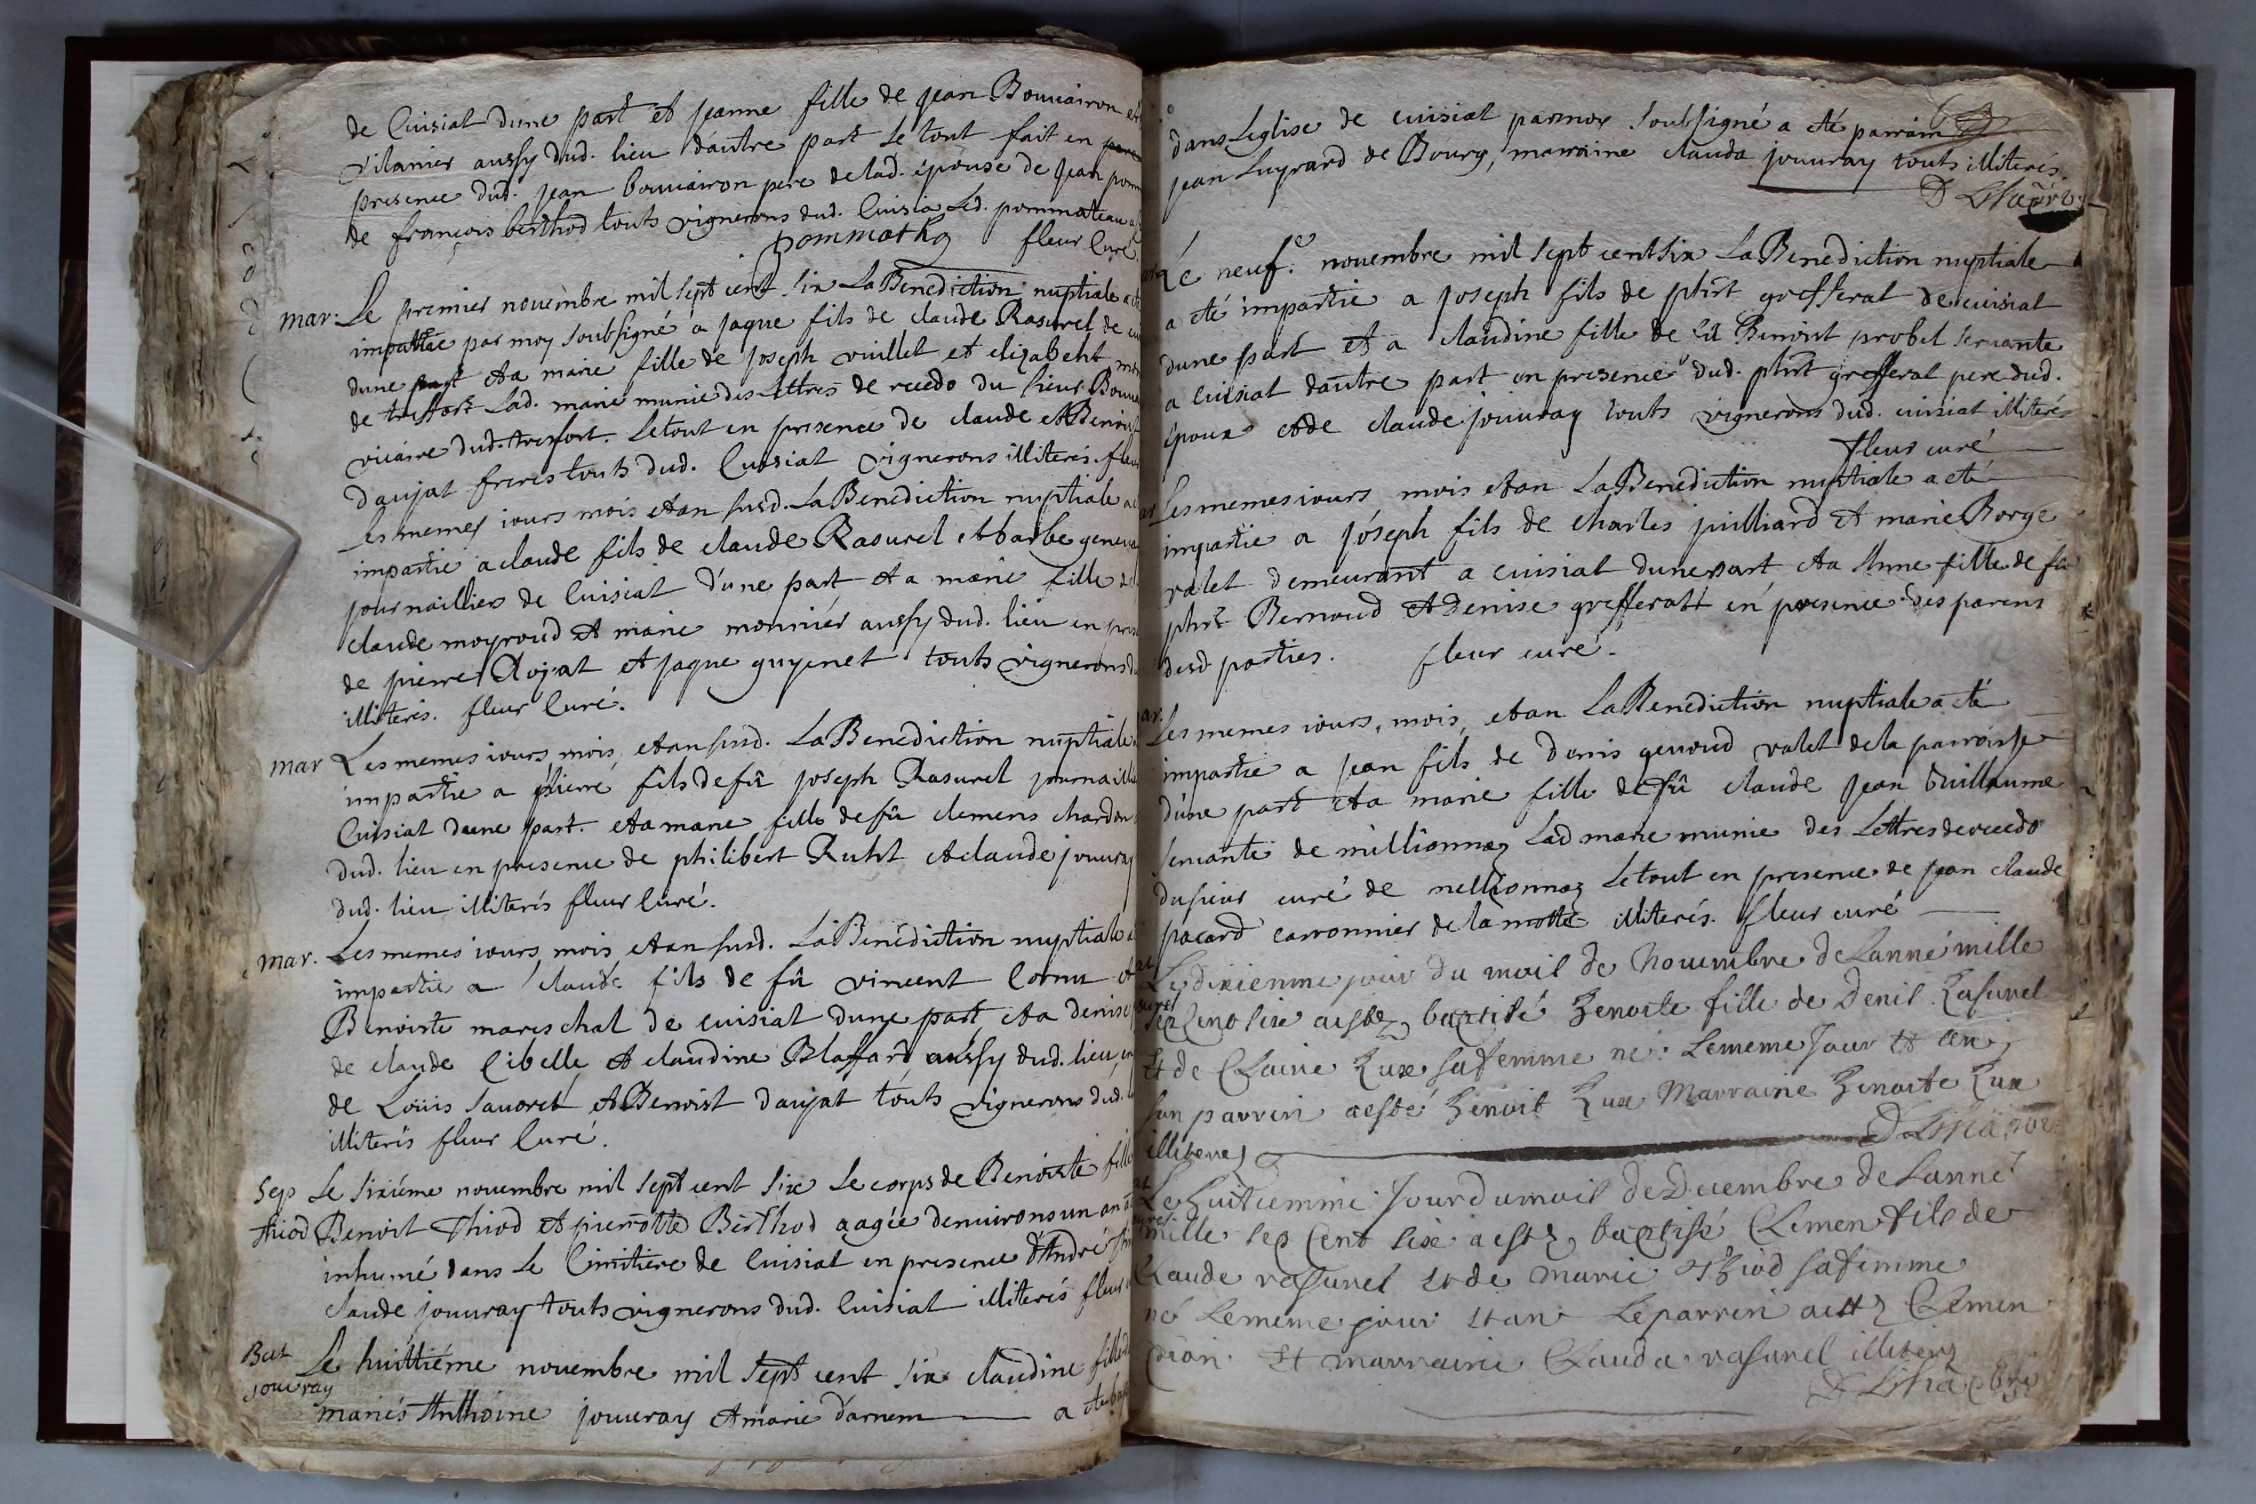 de Cuisiat dune part et jeanne fille de jean Bouvairon et
vilanier aussy dud. lieu dautre part Le tout fait en
presence dud. jean bouvairon pere de lad. épouse de jean pomm
de françois berthod touts vignerons dud. Cuisia Led. pommateau
pommatha fleur Curé.
mar: Le premier novembre mil sept cent six La Benediction nuptiale a
impartie par moy soubsigné a jaque fils de claude Rasurel de cui
dune part et a marie fille de joseph vuillet et elizabeht
de treffort Lad. marie munie des Lettres de recedo du sieur Bouv
vicaire dud. treffort. Le tout en presence de claude et Benoist
daujat freres touts dud. Cuisiat vignerons illiterés. fleur
Les memes iours mois et an susd. La Benediction nuptiale a
impartie a claude fils de claude Rasurel et barbe
journaillier de Cuisiat d'une part et a marie fille de
claude moyroud et marie monnier aussy dud. lieu en pres
de pierre Dojat et jaque guyenet touts vignerons d
illiterés. fleur Curé.
mar Les memes iours, mois, et an susd. La Benediction nuptiale
impartie a pierre fils de fû joseph Rasurel journailli
Cuisiat dune part. et a marie fille de fû clemens chardon
dud. lieu en presence de philibert Ruht et claude jouvray
dud. lieu illiterés fleur Curé.
mar. Les memes iours, mois, et an susd. La Benédiction nuptiale a
impartie a claude fils de fû vincent Cornu et
Benoiste mareschal de cuisiat dune part et a denise
de claude Cibelle et claudine Blaffard aussy dud. lieu, en
de Loüis Savoret et Benoist daujat touts vignerons dud.
illiterés fleur Curé.
Sep Le sixiéme novembre mil sept cent six Le corps de Benoiste fille
thiod Benoist Thiod et pierrotte Berthod aagée denvirons un an a
inhumé dans Le Cimitiere de Cuisiat en presence d'André
claude jouvray touts vignerons dud. Cuisiat illiterés fleur
Bat Le huittiéme novembre mil sept cent six claudine fille d
jouvray
mariés Anthoine jouvray et marie darnem a eté bap
dans Leglise de cuisiat par moy soubsigné a eté parrain
jean Luyrard de Bourg, marraine clauda jouvray touts illiterés.
Le neuf.e novembre mil sept cent six La Benediction nuptiale
a eté impartie a joseph fils de phirt grefferat de cuisiat
dune part et a claudine fille de fû Benoist probet servante
a Cuisiat dautre part en presence dud. phirt grefferat pere dud.
époux et de claude jouvray touts vignerons dud. cuisiat illiterés
fleur curé
Les memes iours mois et an La Benediction nuptiale a eté
impartie a joseph fils de charles juilliard et marie Borge
valet demeurant a cuisiat dune part et a Anne fille de fû
phirt Bernoud et Denise grefferat en presence des parens
desd. parties. fleur curé.
mar. Les memes iours, mois, et an La Benediction nuptiale a eté
impartie a jean fils de denis genoud valet de la parroisse
dune part et a marie fille de fû claude jean Guillaume
servante de millionnaz Lad marie munie des Lettres de recedo
du sieur curé de mellionnaz Le tout en presence de jean claude
pacard carronnier de la motte illiterés. fleur curé
Le dixienme jour du mois de Novembre de Lanné mille
sep Cent sixe a esté baptisé Benoite fille de Denis Rasurel
et de Claine Rux sa femme né. Le meme Jour et an
son parrin a esté Benoit Rux Marraine Benoite Rux
illiteres
Le huitiemme Jour du mois de Decembre de Lanné
mille sep Cent sixe a esté baptisé Clemen fils de
Claude rasurel et de Marie Thiod sa femme
né Le meme jour et an Le parrin a esté Clemen
et marraine Clauda rasurel illiteres